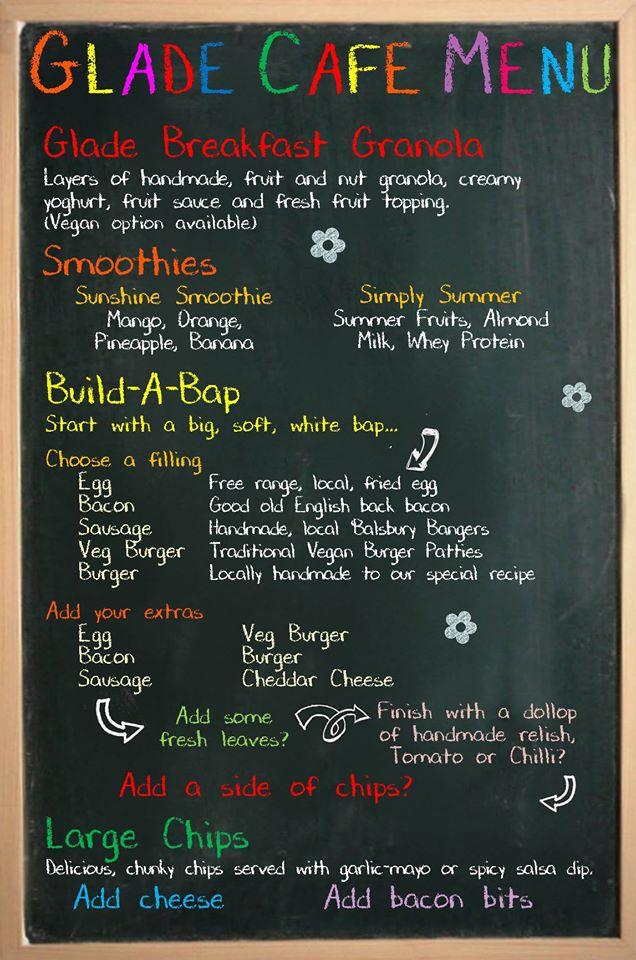 GLADE CAFE MENU
Glade Breakfast Granola
Layers of handmade, fruit and nut granola, creamy
yoghurt, fruit sauce and fresh fruit topping.
(Vegan option available)
Smoothies
Sunshine Smoothie
Mango, Orange,
Pineapple, Banana
Simply Summer
Summer Fruits, Almond
Milk, Whey Protein
Build-A-Bap
Start with a big, soft, white bap...
Choose a filling
Egg Free range, local, fried egg
Bacon Good old English back bacon
Sausage Handmade, local Balsbury Bangers
Veg Burger Traditional Vegan Burger Patties
Burger Locally handmade to our special recipe
Add your extras
Egg Veg Burger
Bacon Burger
Sausage Cheddar Cheese
Add some
fresh leaves?
Finish with a dollop
of handmade relish,
Tomato or Chilli?
Add a side of chips?
Large Chips
Delicious, chunky chips served with garlic-mayo or spicy salsa dip.
Add cheese Add bacon bits